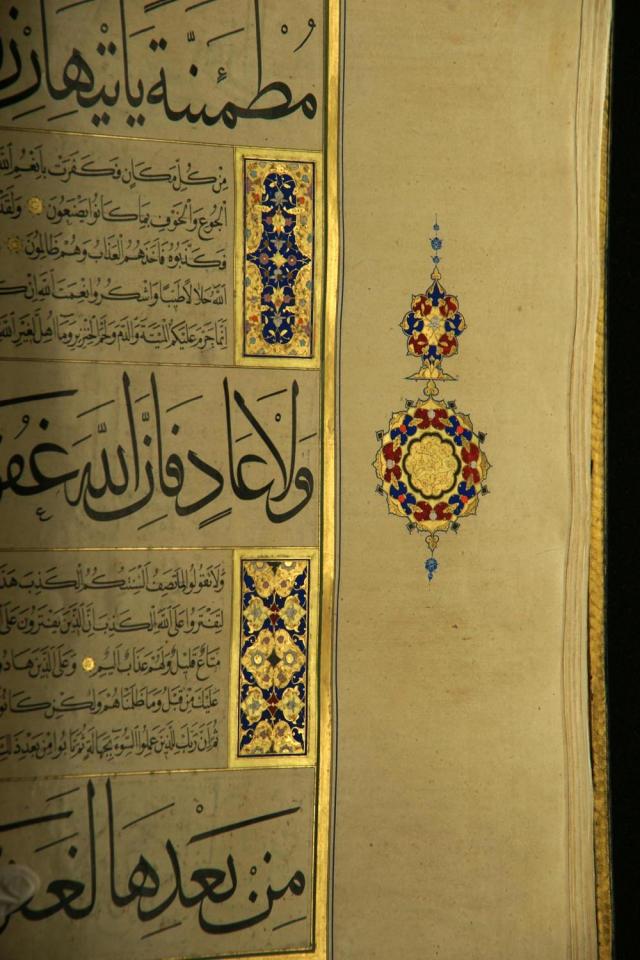 مُطْمَئِنَّةً يَأْتِيهَا رِزْ
مِنْ كُلِّ مَكَانٍ فَكَفَرَتْ بِأَنْعُمِ اللَّهِ
الْجُوعِ وَالْخَوْفِ بِمَا كَانُوا يَصْنَعُونَ وَلَقَدْ
فَكَذَّبُوهُ فَأَخَذَهُمُ الْعَذَابُ وَهُمْ ظَالِمُونَ
اللَّهُ حَلَالًا طَيِّبًا وَاشْكُرُوا نِعْمَتَ اللَّهِ إِنْ
إِنَّمَا حَرَّمَ عَلَيْكُمُ الْمَيْتَةَ وَالدَّمَ وَلَحْمَ الْخِنْزِيرِ وَمَا أُهِلَّ لِغَيْرِ اللَّهِ
وَلَا عَادٍ فَإِنَّ اللَّهَ غَفُو
وَلَا تَقُولُوا لِمَا تَصِفُ أَلْسِنَتُكُمُ الْكَذِبَ هَذَا
لِتَفْتَرُوا عَلَى اللَّهِ الْكَذِبَ إِنَّ الَّذِينَ يَفْتَرُونَ عَلَى
مَتَاعٌ قَلِيلٌ وَلَهُمْ عَذَابٌ أَلِيمٌ وَعَلَى الَّذِينَ هَادُوا
عَلَيْكَ مِنْ قَبْلُ وَمَا ظَلَمْنَاهُمْ وَلَكِنْ كَانُوا
ثُمَّ إِنَّ رَبَّكَ لِلَّذِينَ عَمِلُوا السُّوءَ بِجَهَالَةٍ ثُمَّ تَابُوا مِنْ بَعْدِ ذَلِكَ
مِنْ بَعْدِهَا لَغَفُ